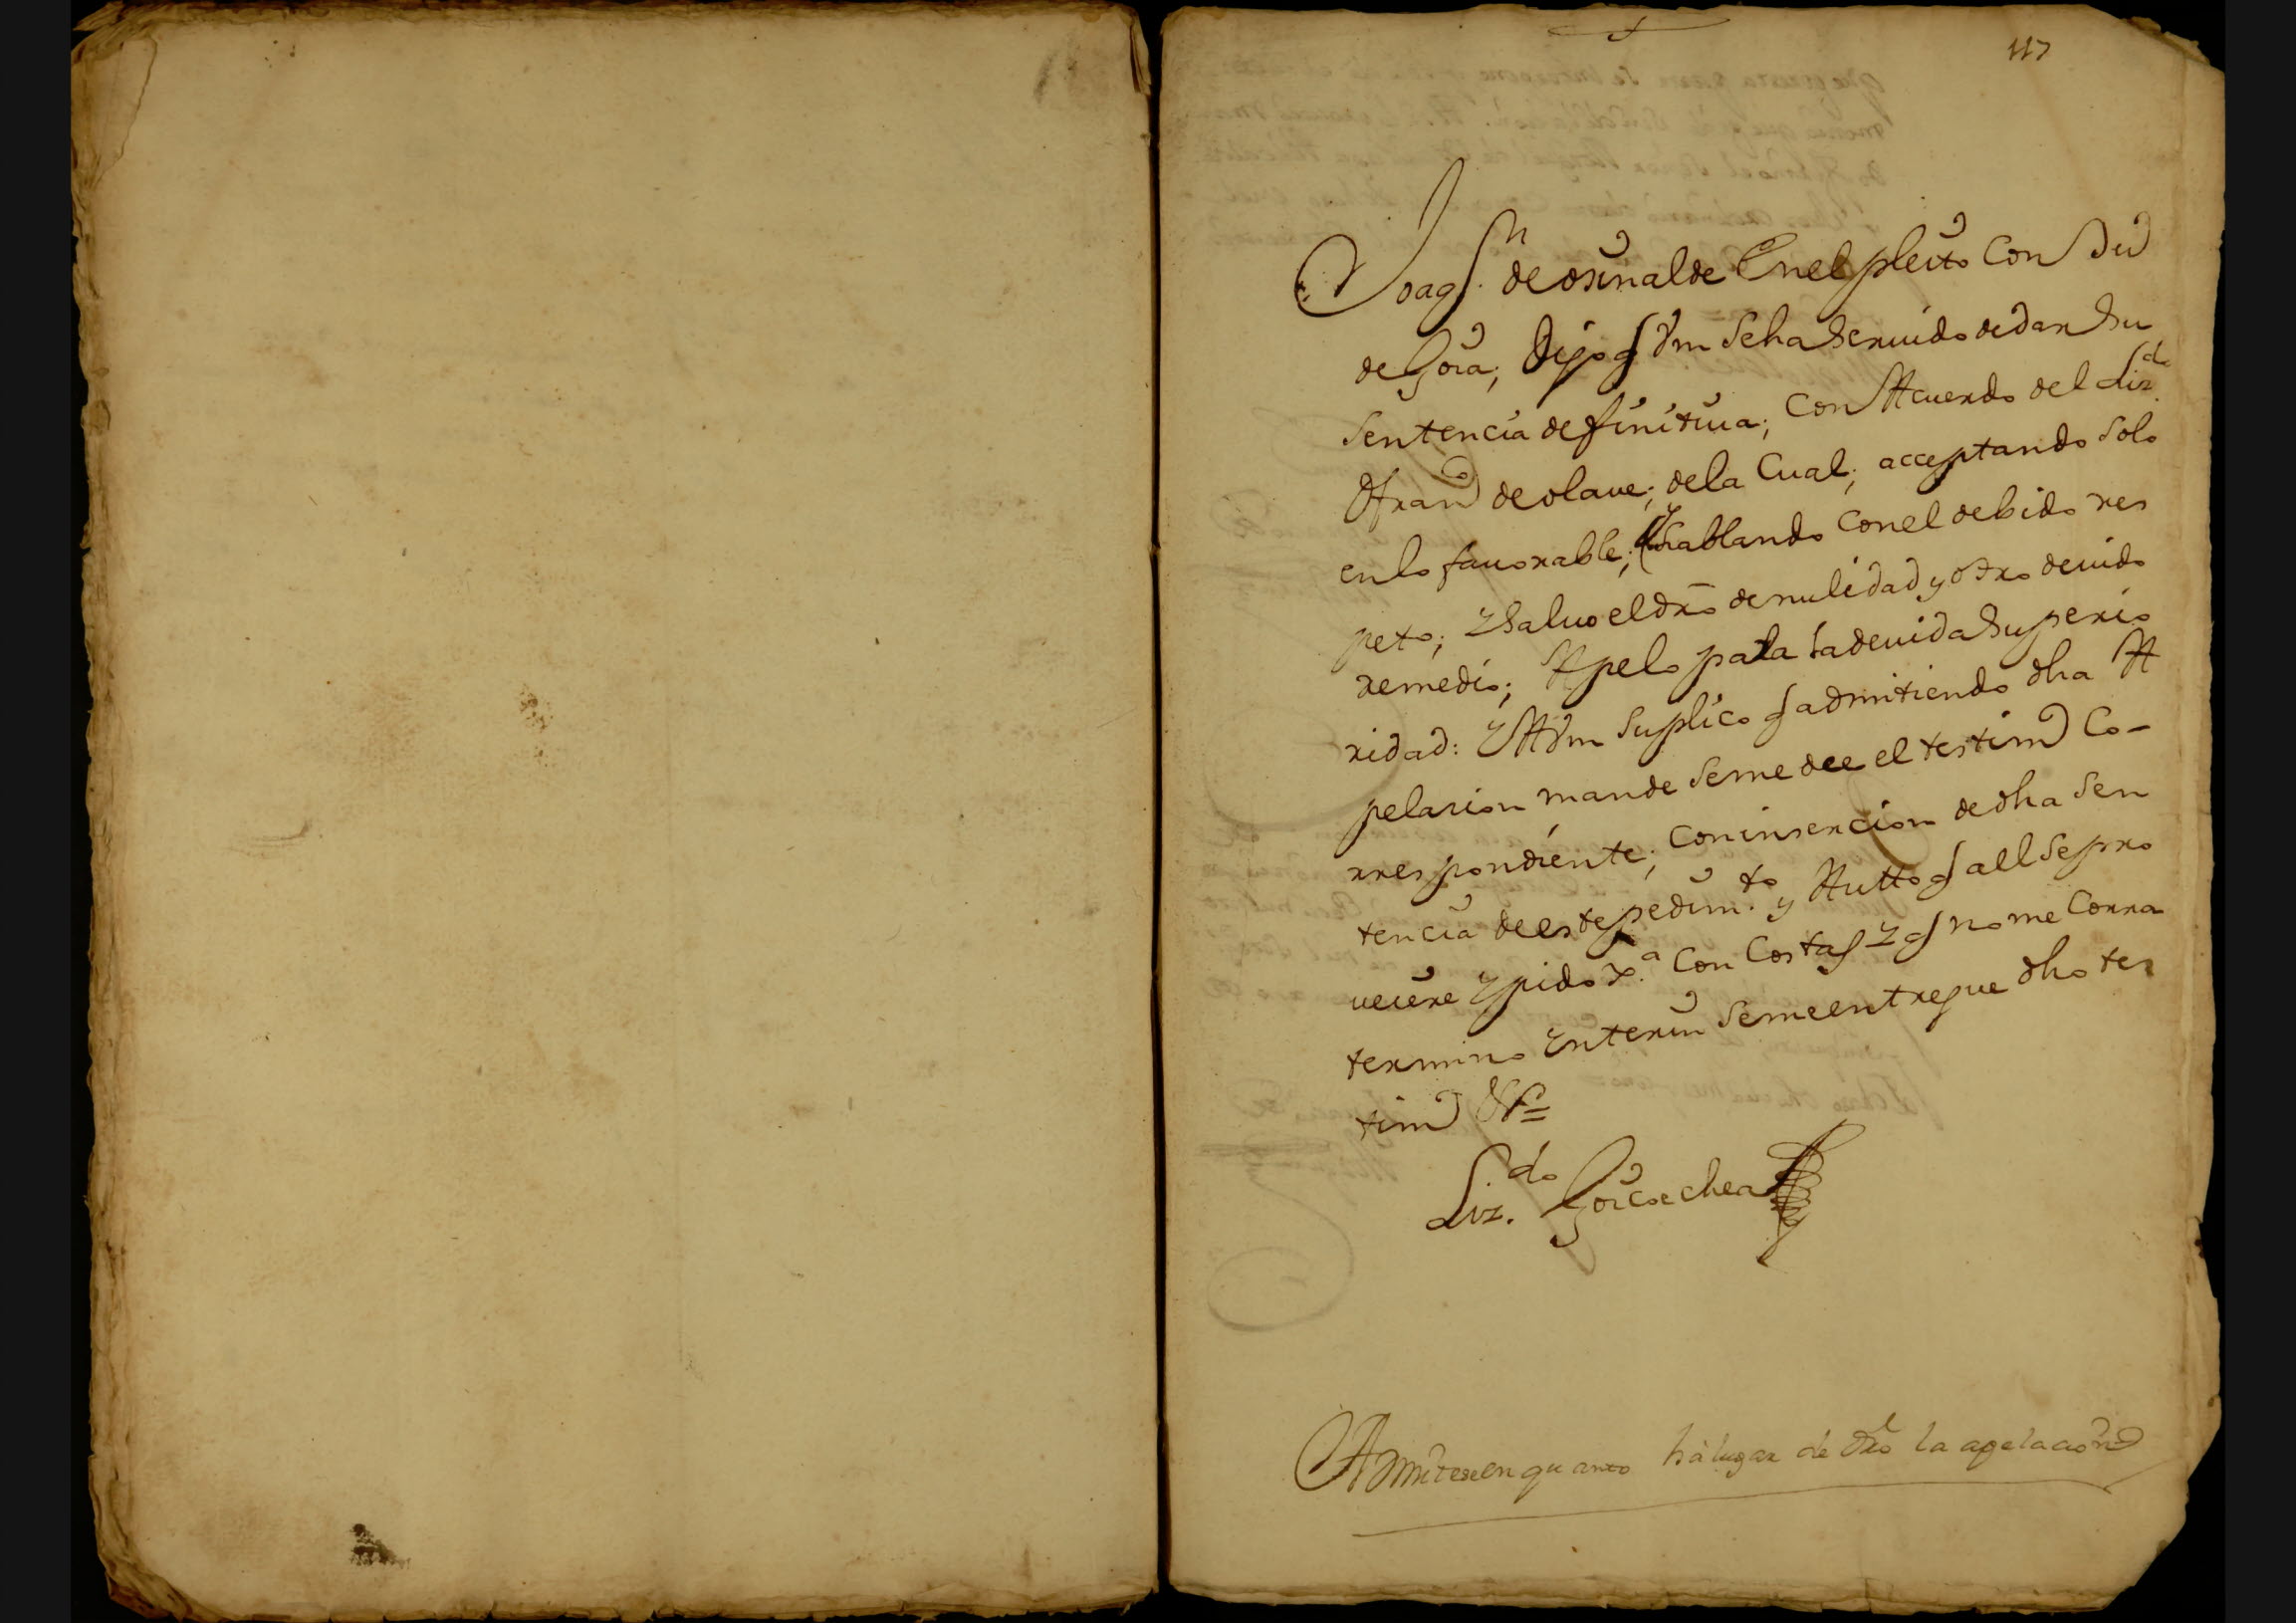 117
Joag.n de orinalde Enel pleito Con Du
de Goia; Digo q Vm Seha Seruido dedar Su
Sentencia definitiua; Con Acuerdo del Liz.do
Fran de olaue; dela Cual; acceptando Solo
enlo fauorable; (hablando Conel debido res
peto; y Saluo el dro de nulidad y otro deuido
remedio; Apelo para la deuida Superio
ridad: y A Vm Suplico q admitiendo dha A
pelacion mande Seme dee el testim Co-
rrespondiente; Con insercion de dha Sen
tencia de este pedim.to y Autto q a el Se pro
ueiere y pido J.a Con Costas y q no me Corra
termino ynterin Seme entregue dho tes
tim &.a =
Liz.do Goicoechea
Admitese en quanto há lugar de dro la apelacion